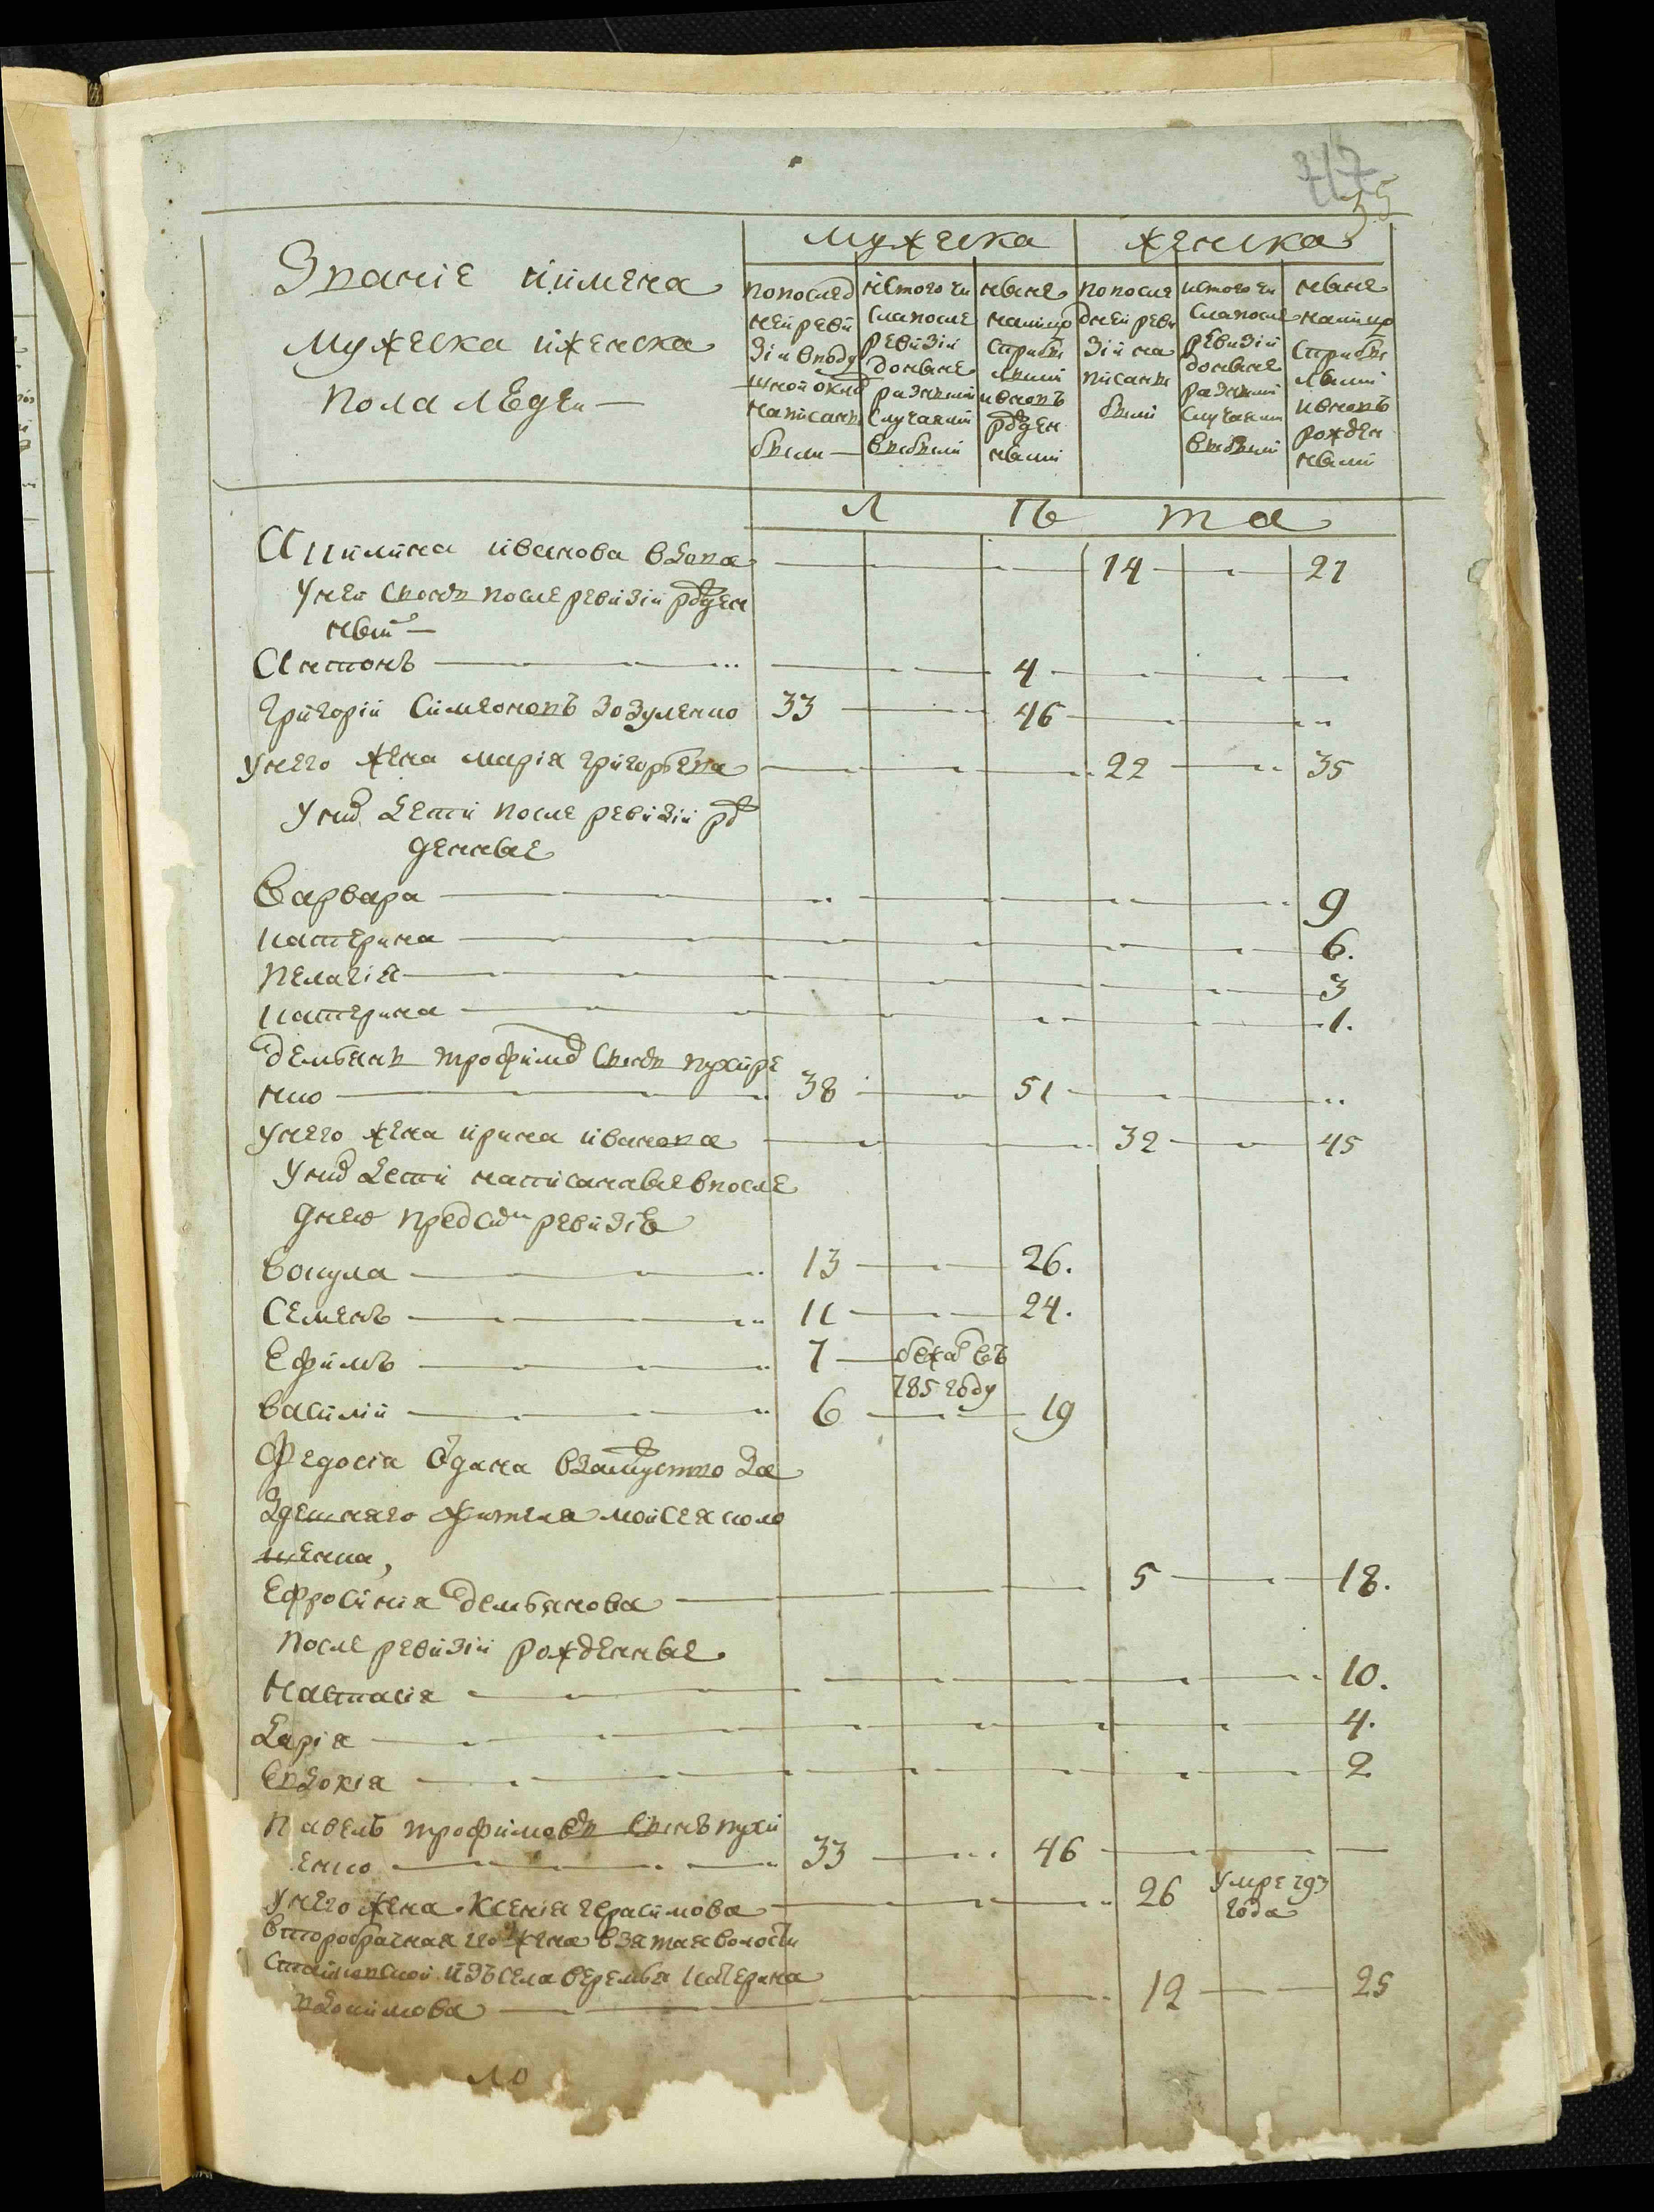 35
Званіе иимена
мужеска иженска
пола людеи
мужеска
женска
попослед
ней реви
зіи вподу
шной окла
написаны
были
истого чи
сла после
ревизіи
доныне
разными
случаями
выбыли
ныне
налицо
сприбы
лыми
ивновъ
рожден
ными
попосле
дней реви
зіи на
писаны
были
истого чи
сла после
ревизіи
доныне
разными
случаями
выбыли
ныне
налицо
сприбы
лыми
ивновъ
рожден
ными
л ѣ т а
Акилина иванова вдова 14 27
Унеи сынъ после ревизіи рожден
ныи
Антонъ 4
Григоріи Симеоновъ Зозуленко 33 46
Унего жена марія григорьева 22 35
Уних дети после ревизіи рож
денные
Варвара 9
катерина 6.
Пелагія 3
катерина 1.
демьянъ трофимов сынъ пухире
нко 38 51
Унего жена ирина иванова 32 45
Уних дети написанные впосле
днею пред сим ревизіѣ
Вокула 13 26.
Семенъ 11 24.
Ефимъ 7 бежал въ
785 году
василіи 6 19
Федосія отдана взамужство за
здешнего жителя мойсея коло
менка,
Ефросинія демьянова 5 18.
после ревизіи рожденные
Настасія 10.
Дарія 4.
Евдокія 2
Павелъ трофимовъ сынъ пухи
енко 33 46
Унего жена Ксенія герасимова 26 Умре 793
года
второбрачная его жена взятая волости
изъ села веремья катерина
12 25